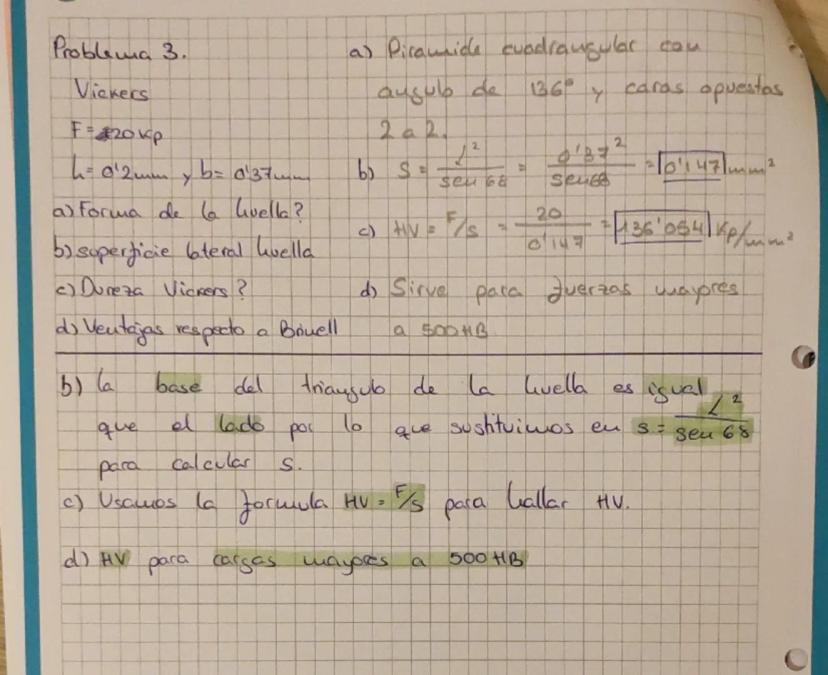 Problema 3.
Vickers
F = 20 Kp
h = 0'2mm y b = 0'37mm
a) Forma de la huella?
b) superficie lateral huella
c) Dureza Vickers?
d) Ventajas respecto a Brinell
a) Piramide cuadrangular con
angulo de 136º y caras opuestas
2 a 2.
b) S = L² / sen 68 = 0'37² / sen 68 = 0'147 mm²
c) HV = F/S = 20 / 0'147 = 136'054 Kp/mm²
d) Sirve para fuerzas mayores
a 500 HB
b) la base del triangulo de la huella es igual
que el lado por lo que sustituimos en s = L² / sen 68
para calcular s.
c) Usamos la formula HV = F/S para hallar HV.
d) HV para cargas mayores a 500 HB